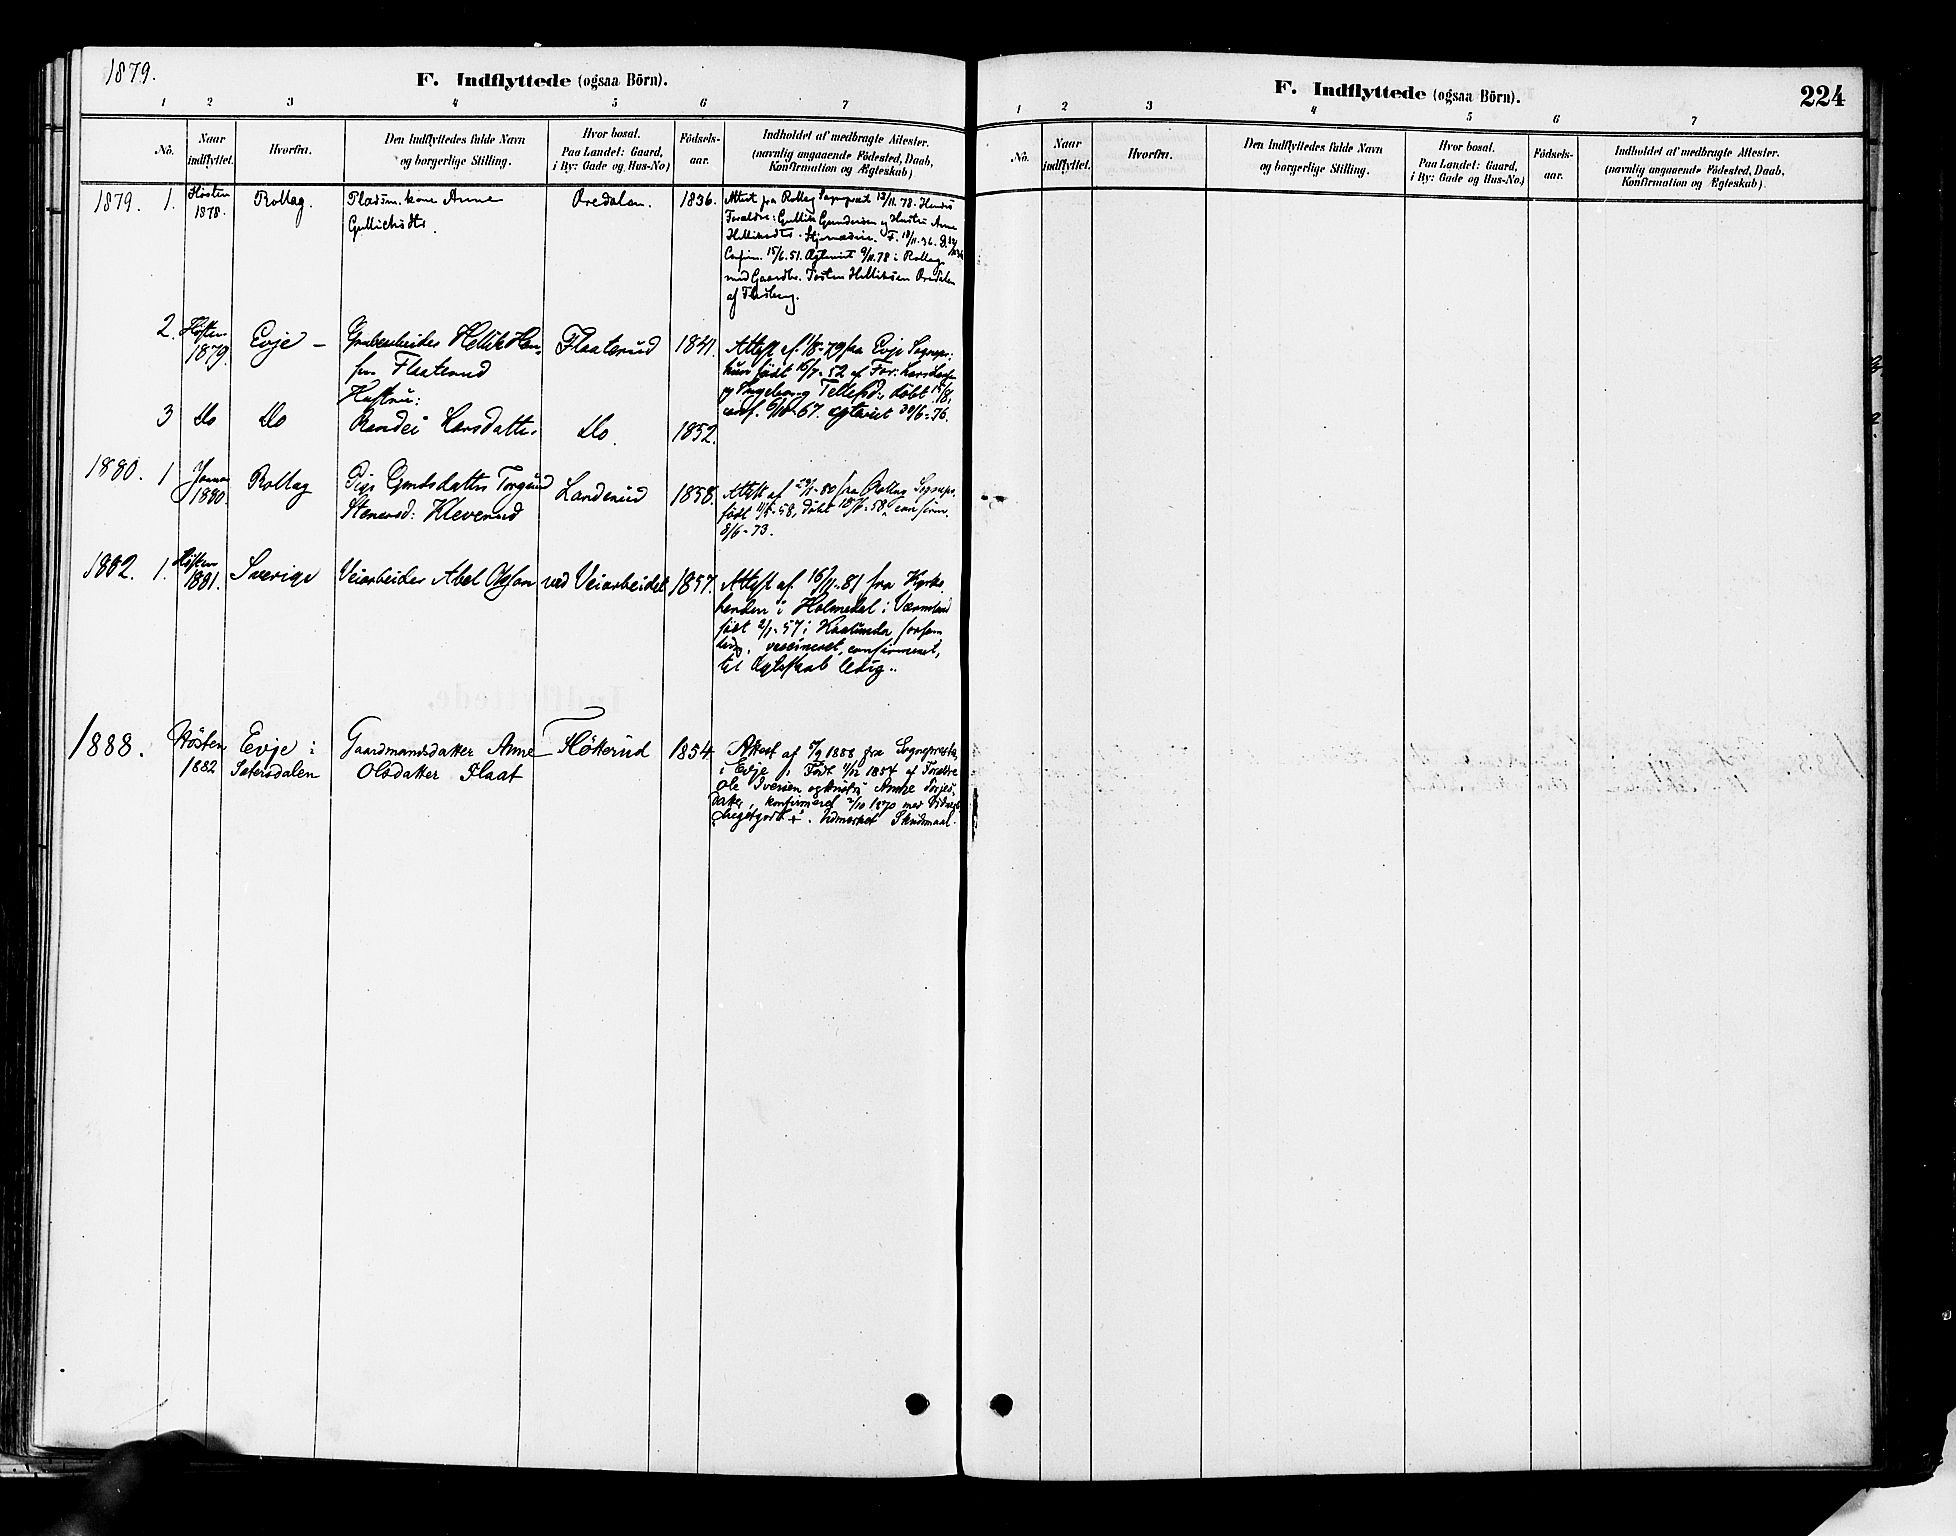 1879.
F. Indflyttede (ogsaa Börn).
1 2 3 4 5 6 7
No.
Naar
indflyttet.
Hvorfra.
Den Indflyttedes fulde Navn
og borgerlige Stilling.
Hvor bosat.
Paa Landet: Gaard,
i By: Gade og Hus-No)
Födsels-
aar.
Indholdet af medbragte Attester.
(navnlig angaaende Födested, Daab,
Konfirmation og Ægteskab)
1879. 1.
Hösten
1878.
Rollag.
Pladsm. kone Anne
Gullichsdtr.
Öredalen.
1836.
Attest fra Rollag Sognepræst 12/11.78. Hendes
Forældre: Gullik Gundersen og Hustru Anne
F. 18/11.36.
Confirm. 15/6.51. Ægteviet 9/11.78 i Rollag
med Gaardbr. Torsten Helliksen Öredalen
af Flesberg.
2.
Høsten
1879.
Evje –
Grubearbeider Hellik Han-
sen Flaaterud
Flaaterud
1841.
Attest af 1/8-79 fra Evje Sognepr:
hun født 16/7-52 af For: Lars
og Ingeborg Tellefsd:, döbt 15/8,
conf. 6/10-67. ægteviet 30/6-76.
Hustru:
3 Do Do
Randei Larsdatter
Do.
1852.
1880. 1
Januar
1880.
Rollag
Pige Gmdsdatter Torgund
Stenersd: Kleverud
Landerud
1858.
Attest af 29/1-80 fra Rollag Sognepr.
født 11/4-58, døbt 18/4-58, confirm.
8/6-73.
1882. 1.
Høsten
1881.
Sverige
Veiarbeider Abel Olsson
ved Veiarbeidet
1857.
Attest af 16/11-81 fra Kyrko
herden i Holmedal i Værmland
født 2/1-57 i forsam
ling. vaccineret, confirmeret,
til Ægteskab ledig..
1888.
Hösten
1882
Evje i
Sætersdalen
Gaardmandsdatter Anne
Olsdatter Flaat
Fløtterud
1854
Attest af 5/9 1888 fra Sognepresten
i Evje, Født 4/12 1854 af Forældre
Ole Iversen og Hustru Anne Torjes-
datter, konfirmeret 2/10 1870 med Vidnesb.
meget godt +. Udmerket Skudsmaal.
F. Indflyttede (ogsaa Börn).
224
1 2 3 4 5 6 7
No.
Naar
indflyttet.
Hvorfra.
Den Indflyttedes fulde Navn
og borgerlige Stilling.
Hvor bosat.
Paa Landet: Gaard,
i By: Gade og Hus-No.)
Födsels-
aar.
Indholdet af medbragte Attester.
(navnlig angaaende Födested, Daab,
Konfirmation og Ægteskab).